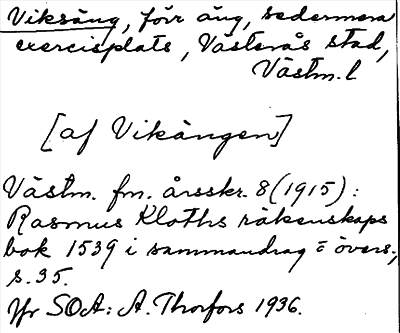 Viksäng, förr äng, sedermera
exercisplats, Västerås stad,
Västm. l
[af Vikängen]
Västm. fm. årsskr. 8 (1915):
Rasmus Kloths räkenskaps
bok 1539 i sammandrag o övers.,
s. 35.
Yr SOA: A. Thorfors 1936.